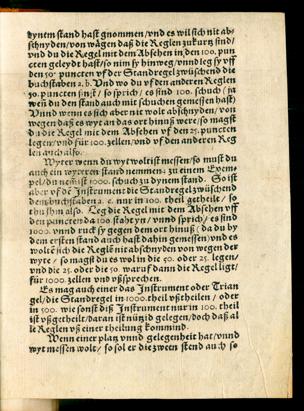 dynem stand hast gnommen/vnd es wil sich nit ab-
schnyden/von wägen daß die Reglen zu kurtz sind/
vnd du die Regel mit dem Absehen in den 100. pun
cten geleydt hast/so nim sy hinweg/vnnd leg sy vff
den 50. puncten vf der Standregel zwüschend die
buchstaben a.b. Vnd wo du vf den anderen Reglen
50. puncten findst/so sprich/es sind 100. schuch (ja
wen du den stand auch mit schuchen gemessen hast)
Vnnd wenn es sich aber nit wolt abschnyden/von
wegen daß es wyt an das ort hinuß were/so magst
du die Regel mit dem Absehen vf den 25. puncten
legen/vnd für 100. zellen/vnd vf den anderen Reg
len auch also.
Wyter wenn du wyt woltist messen/so must du
auch ein wyteren stand nemmen: zu einem Exem
pel/du nemist 1000. schuch zu dynem stand. So ist
aber vf dem Instrument die Standregel zwüschend
dem buchstaben a. e nur in 100. theil getheilt/so
thu ihm also. Leg die Regel mit dem Absehen vff
den puncten da 100 staht yn/vnnd sprich/es sind
1000. vnnd ruck sy gegen dem ort hinuß (da du by
dem ersten stand auch hast dahin gemessen) vnd es
woltě sich die Reglě nit abschnyden von wegen der
wyte/so magst du es wol in die 50. oder 25. legen/
vnd die 25. oder die 50. waruf dann die Regel ligt/
für 1000. zellen vnd vßsprechen.
Es mag auch einer das Instrument oder Trian
gel/die Standregel in 1000. theil vßtheilen/oder
in 500. wie sonst diß Instrument nur in 100. theil
ist vßgetheilt/daran ist nüt zid gelegen/doch daß al
le Reglen vß einer theilung kommind.
Wenn einer platz vnnd gelegenheit hat/vnnd
wyt messen wolt/so sol er die zween stend auch so